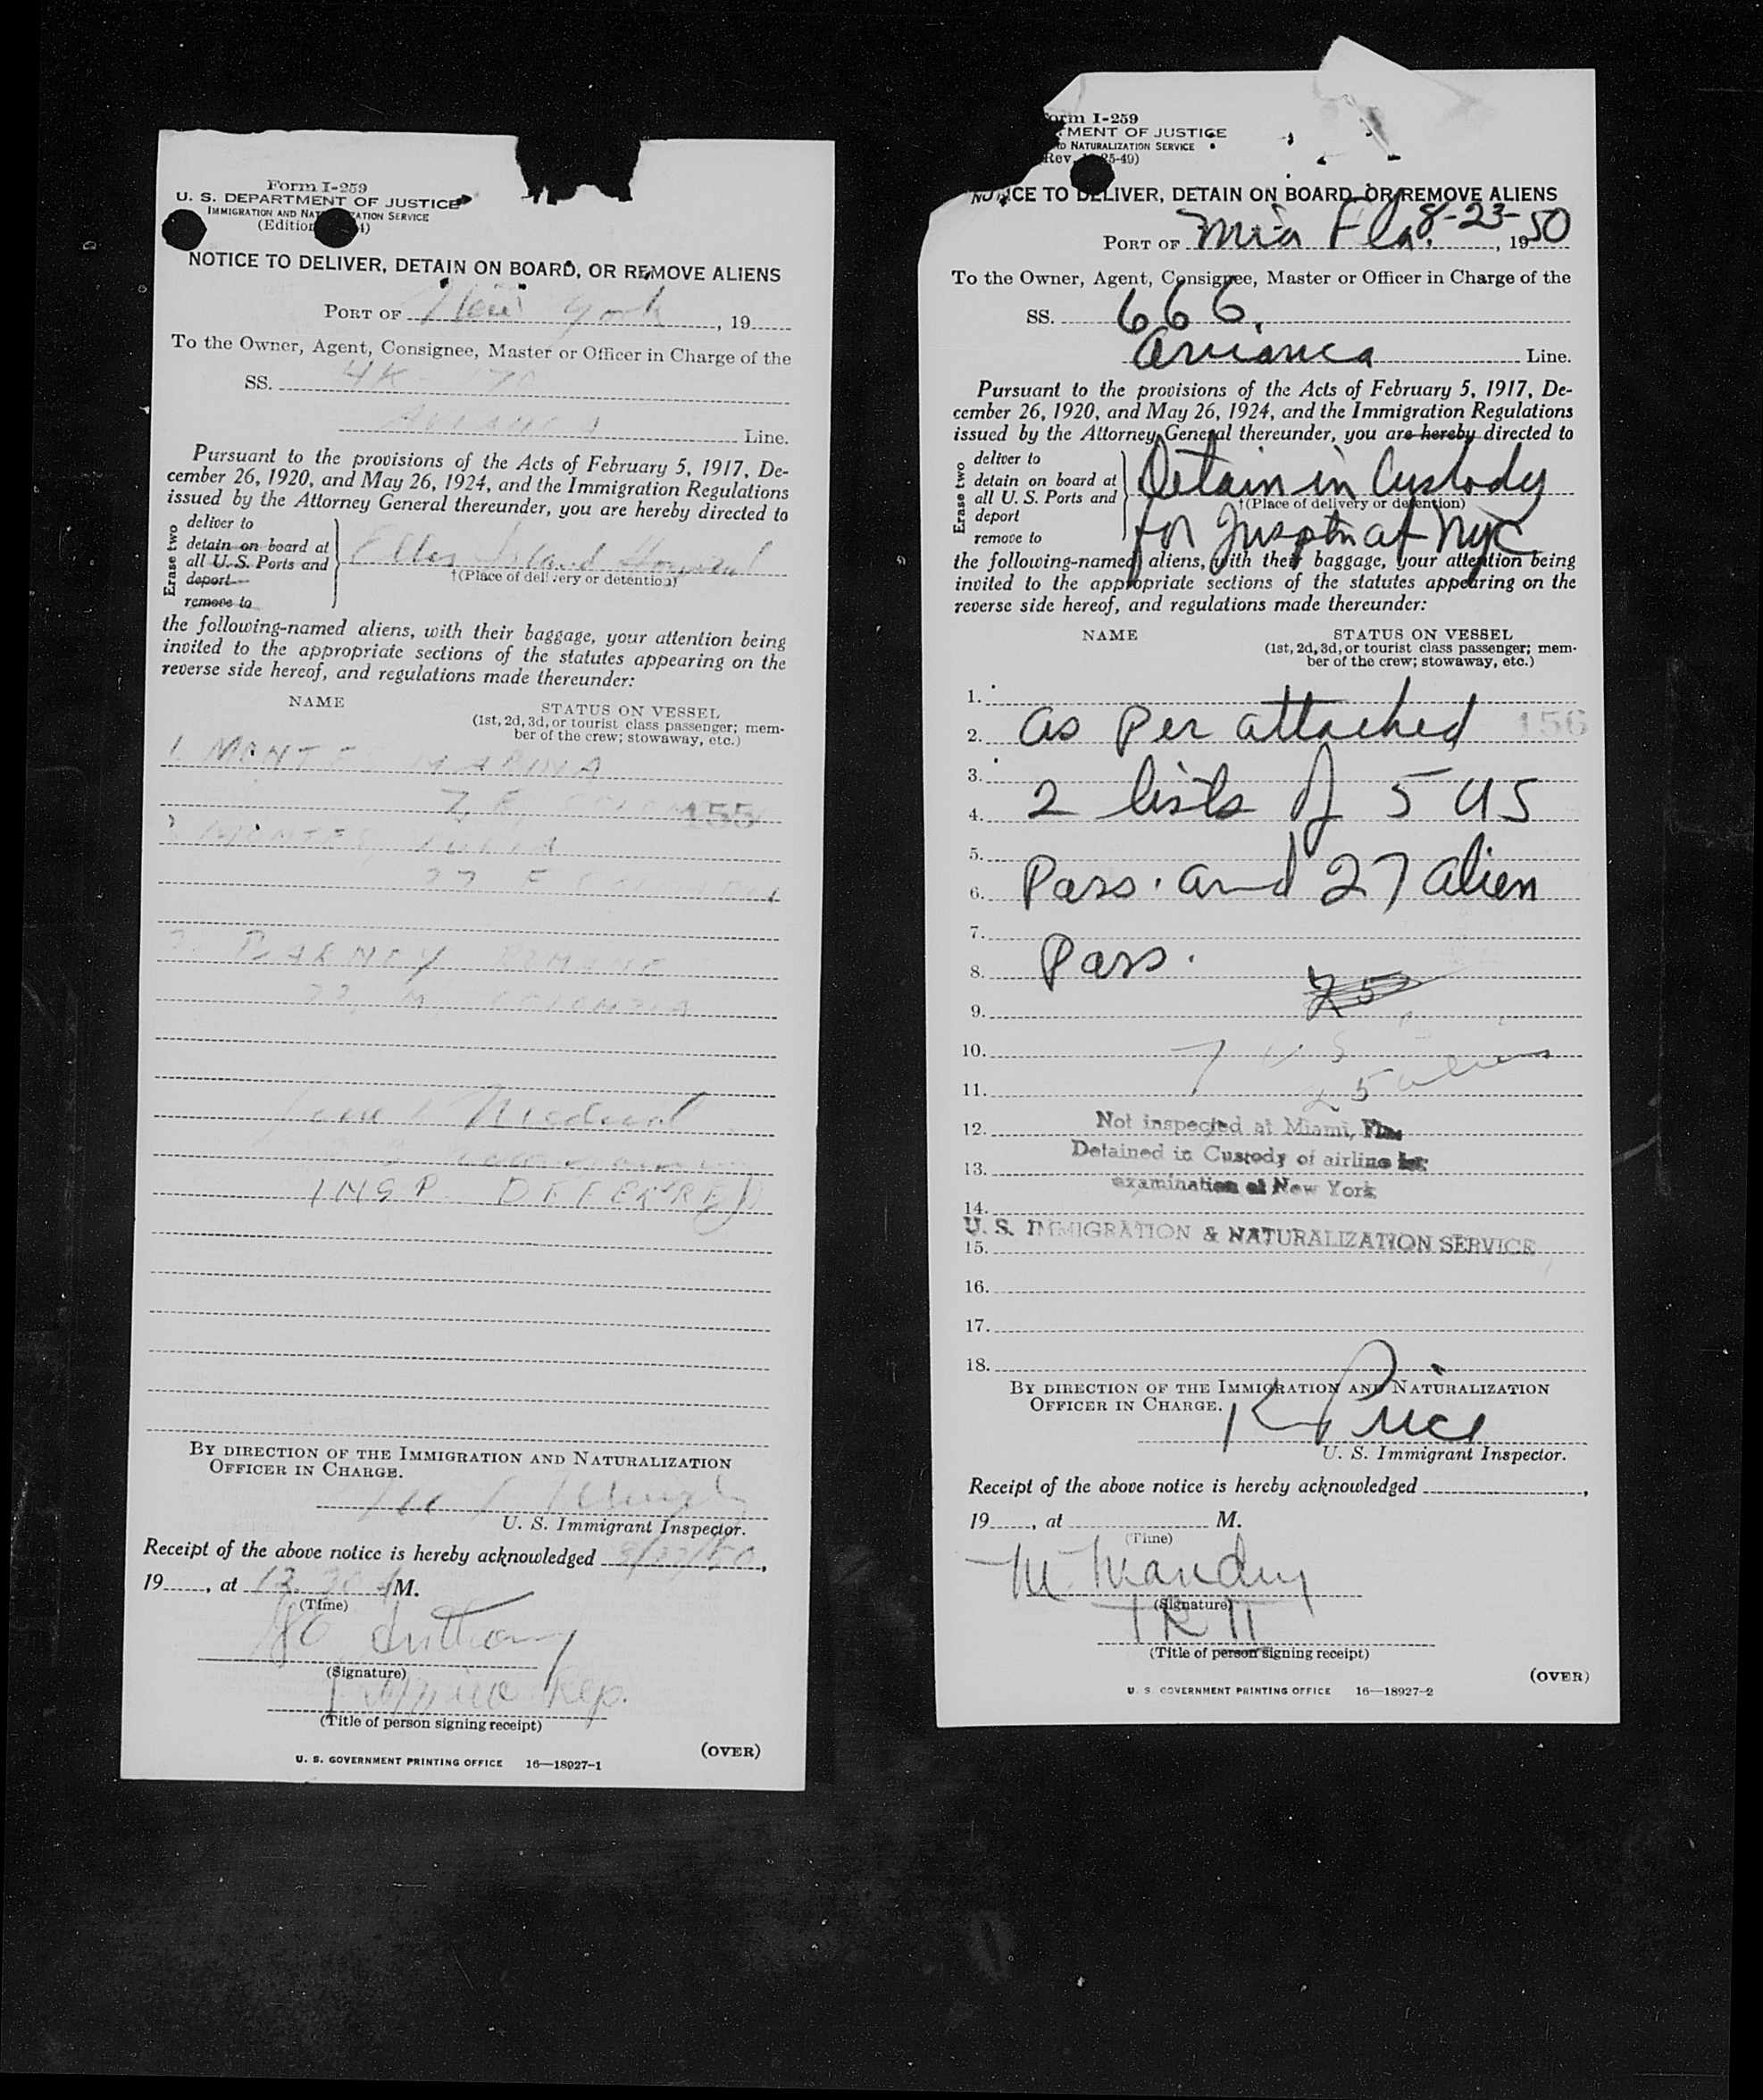 Form I-259
U. S. DEPARTMENT OF JUSTICE
IMMIGRATION AND NATURALIZATION SERVICE
(Edition
NOTICE TO DELIVER, DETAIN ON BOARD, OR REMOVE ALIENS
PORT OF New York, 19
To the Owner, Agent, Consignee, Master or Officer in Charge of the
SS. 4K
AVIANCA Line.
Pursuant to the provisions of the Acts of February 5, 1917, De-
cember 26, 1920, and May 26, 1924, and the Immigration Regulations
issued by the Attorney General thereunder, you are hereby directed to
Erase two
deliver to
detain on board at
all U. S. Ports and
deport
remove to
Ellis Island
†(Place of delivery or detention)
the following-named aliens, with their baggage, your attention being
invited to the appropriate sections of the statutes appearing on the
reverse side hereof, and regulations made thereunder:
NAME
STATUS ON VESSEL
(1st, 2d, 3d, or tourist class passenger; mem-
ber of the crew; stowaway, etc.)
1. MARINA
7 F
155
27 F
M
Medical
INSP. DEFERRED
BY DIRECTION OF THE IMMIGRATION AND NATURALIZATION
OFFICER IN CHARGE.
U. S. Immigrant Inspector.
Receipt of the above notice is hereby acknowledged
19, at 12 30 AM.
(Time)
Anthony
(Signature)
Rep.
(Title of person signing receipt)
(OVER)
U. S. GOVERNMENT PRINTING OFFICE 16—18927-1
Form I-259
MENT OF JUSTICE
NATURALIZATION SERVICE
NOTICE TO DELIVER, DETAIN ON BOARD, OR REMOVE ALIENS
PORT OF Mia Fla. 8-23-, 1950
To the Owner, Agent, Consignee, Master or Officer in Charge of the
SS. 666.
Avianca Line.
Pursuant to the provisions of the Acts of February 5, 1917, De-
cember 26, 1920, and May 26, 1924, and the Immigration Regulations
issued by the Attorney General thereunder, you are hereby directed to
Erase two
deliver to
detain on board at
all U. S. Ports and
deport
remove to
Detain in Custody
†(Place of delivery or detention)
for Insptn at NYC
the following-named aliens, with their baggage, your attention being
invited to the appropriate sections of the statutes appearing on the
reverse side hereof, and regulations made thereunder:
NAME
STATUS ON VESSEL
(1st, 2d, 3d, or tourist class passenger; mem-
ber of the crew; stowaway, etc.)
1.
2. as per attached 156
3.
4. 2 lists of 5 US
5.
6. Pass. and 27 alien
7.
8. Pass.
9. 25
10. 7 US
11. 25 aliens
12. Not inspected at Miami, Fla.
13. Detained in Custody of airline for
examination at New York
14.
U. S. IMMIGRATION & NATURALIZATION SERVICE
15.
16.
17.
18.
BY DIRECTION OF THE IMMIGRATION AND NATURALIZATION
OFFICER IN CHARGE.
K Price
U. S. Immigrant Inspector.
Receipt of the above notice is hereby acknowledged
19, at M.
(Time)
(Signature)
(Title of person signing receipt)
(OVER)
U. S. GOVERNMENT PRINTING OFFICE 16—18927-2